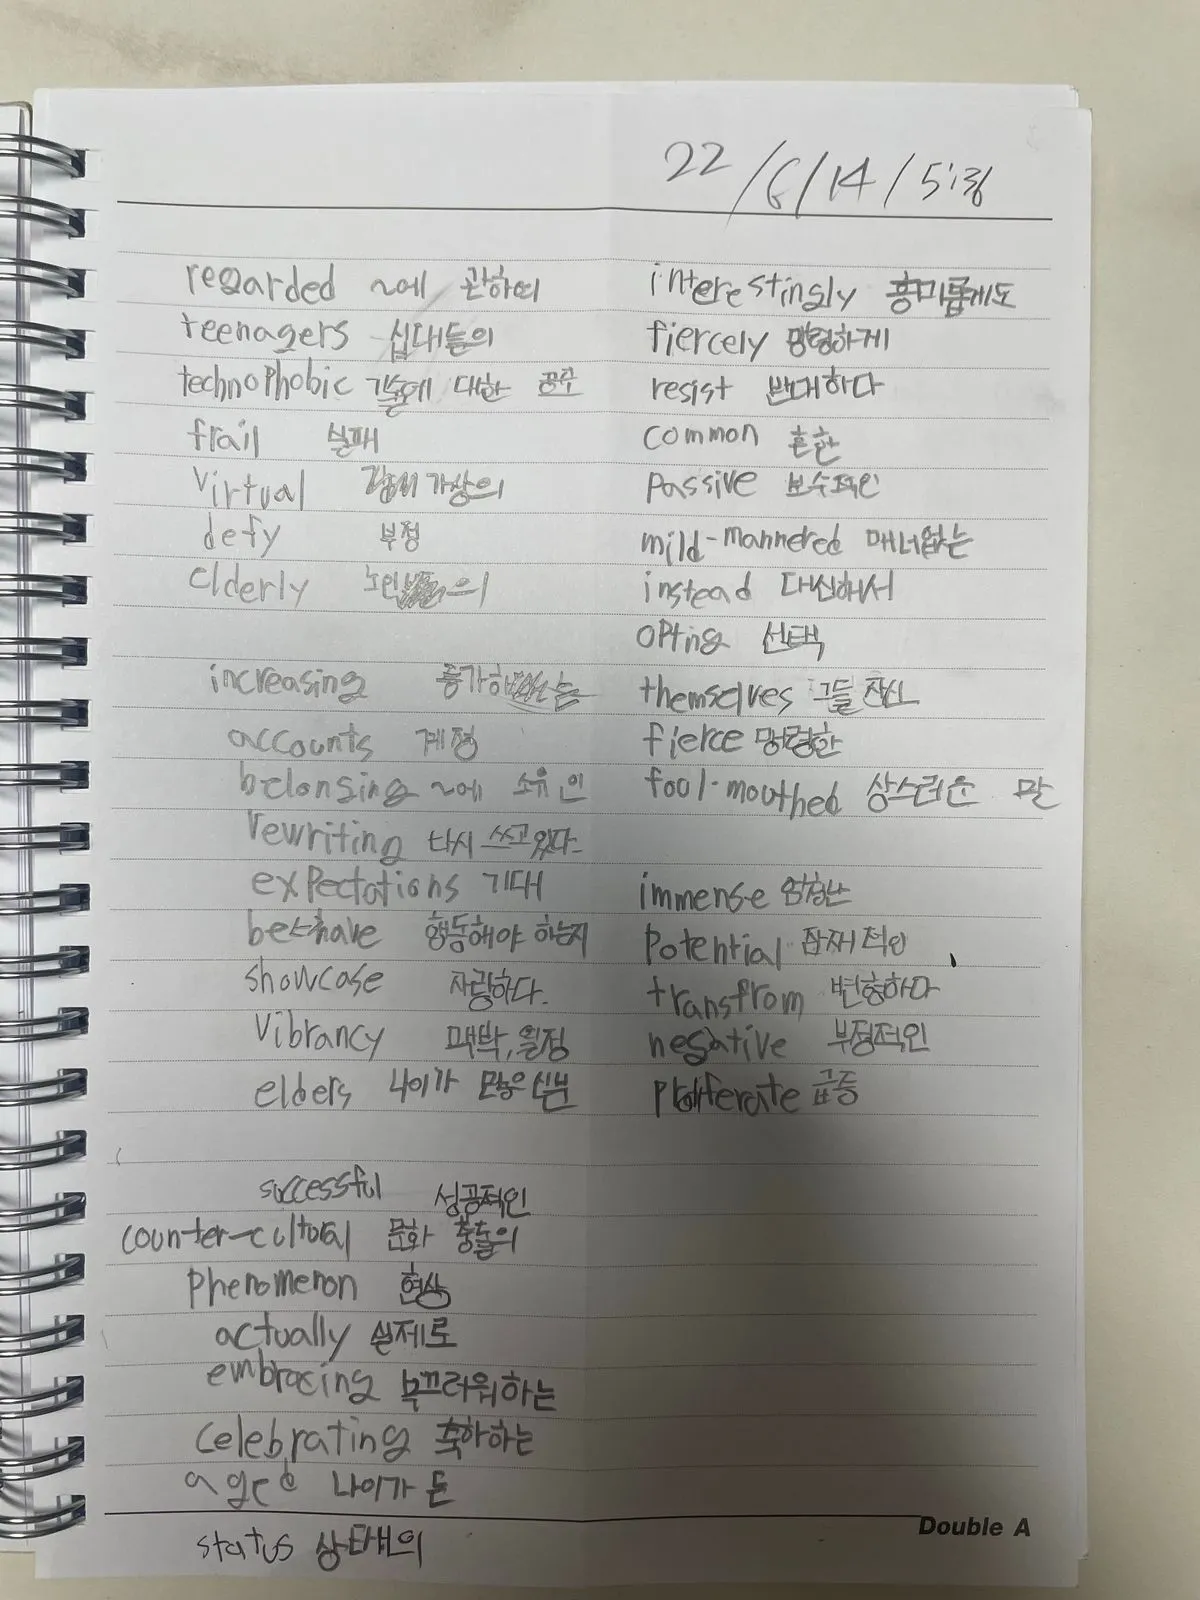 22/6/14/
regarded ~에 관하여
teenagers 십대들의
technophobic 기술에 대한 공포
frail 실패
virtual 가상의
defy 부정
elderly 노인의
increasing 증가하는
accounts 계정
belonging ~에 소유인
rewriting 다시 쓰고있다.
expectations 기대
behave 행동해야 하는지
showcase 자랑하다.
Vibrancy 맥박, 열정
elders 나이가 많은신분
successful 성공적인
counter-cultural 문화 충돌의
phenomenon 현상
actually 실제로
embracing 부끄러워하는
celebrating 축하하는
aged 나이가 든
status 상태의
interestingly 흥미롭게도
fiercely 맹렬하게
resist 반대하다
common 흔한
passive 보수적인
mild-mannered 매너없는
instead 대신해서
opting 선택
themselves 그들 자신
fierce 맹렬한
foul-mouthed 상스러운 말
immense 엄청난
potential 잠재적인
transfrom 변형하다
negative 부정적인
proliferate 급증
Double A